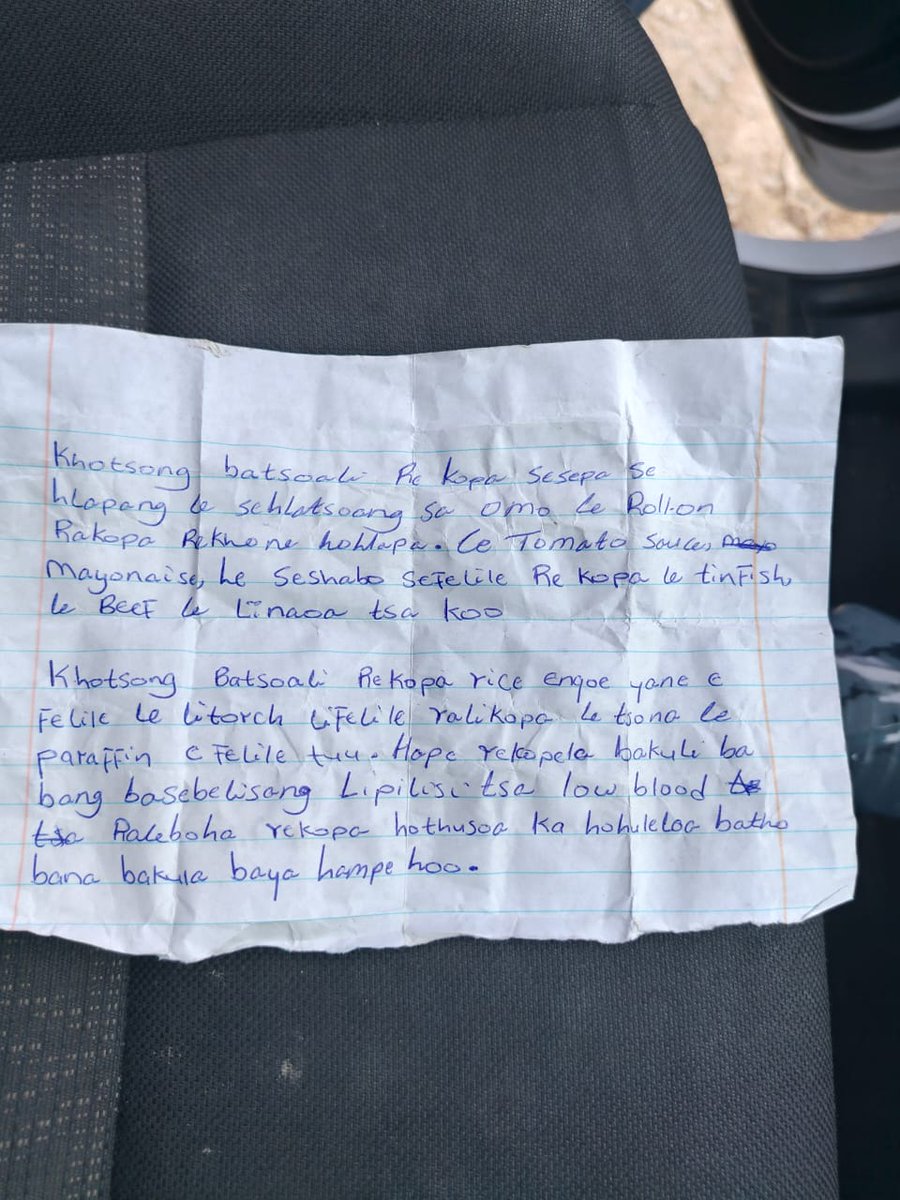 Khotsong batsoali Re kopa Sesepa Se
hlapang le sehlatsoang sa omo le Roll-on
Rakopa Rekhone hohlapa. Le Tomato Sauce,
Mayonaise, Le Seshabo SeFelile Re Kopa le tinFish,
le BeeF le Linaoa tsa koo
Khotsong Batsoali Rekopa rice engoe yane e
Felile le litorch liFelile ralikopa le tsona le
paraffin e Felile tuu. Hape rekopela bakuli ba
bang basebelisang Lipilisi tsa low blood
Raleboha rekopa hothusoa Ka hohuleloa batho
bana bakula baya hampe hoo.